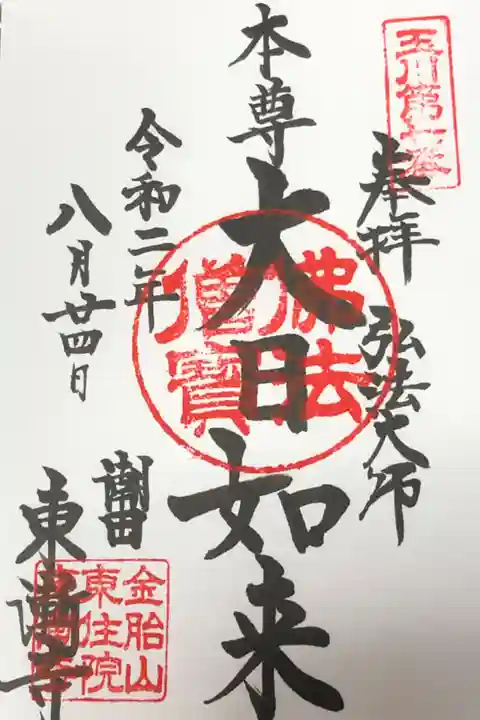 玉川第七番
奉拝 弘法大師
本尊 大日如来
佛法僧寶
令和二年
八月廿四日
潮田
東漸寺
金胎山
東住院
東漸寺